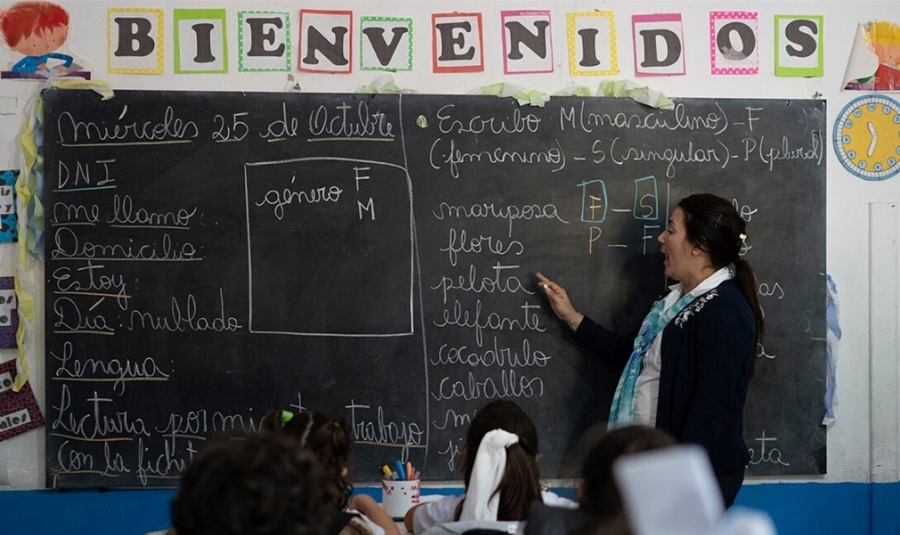 BIENVENIDOS
miércoles 25 de Octubre
DNI
me llamo:
Domicilio:
Estoy:
Día: nublado
Lengua:
Lectura por mi trabajo
Con la
género F
M
Escribo M(masculino)-F
(femenino)-S(singular)-P(plural)
mariposa F - S
flores P - F
pelota
elefante
cocodrulo
caballos